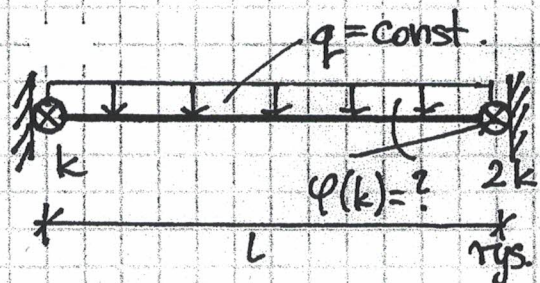 q = const.
k
φ(k) = ?
2k
l
rys.